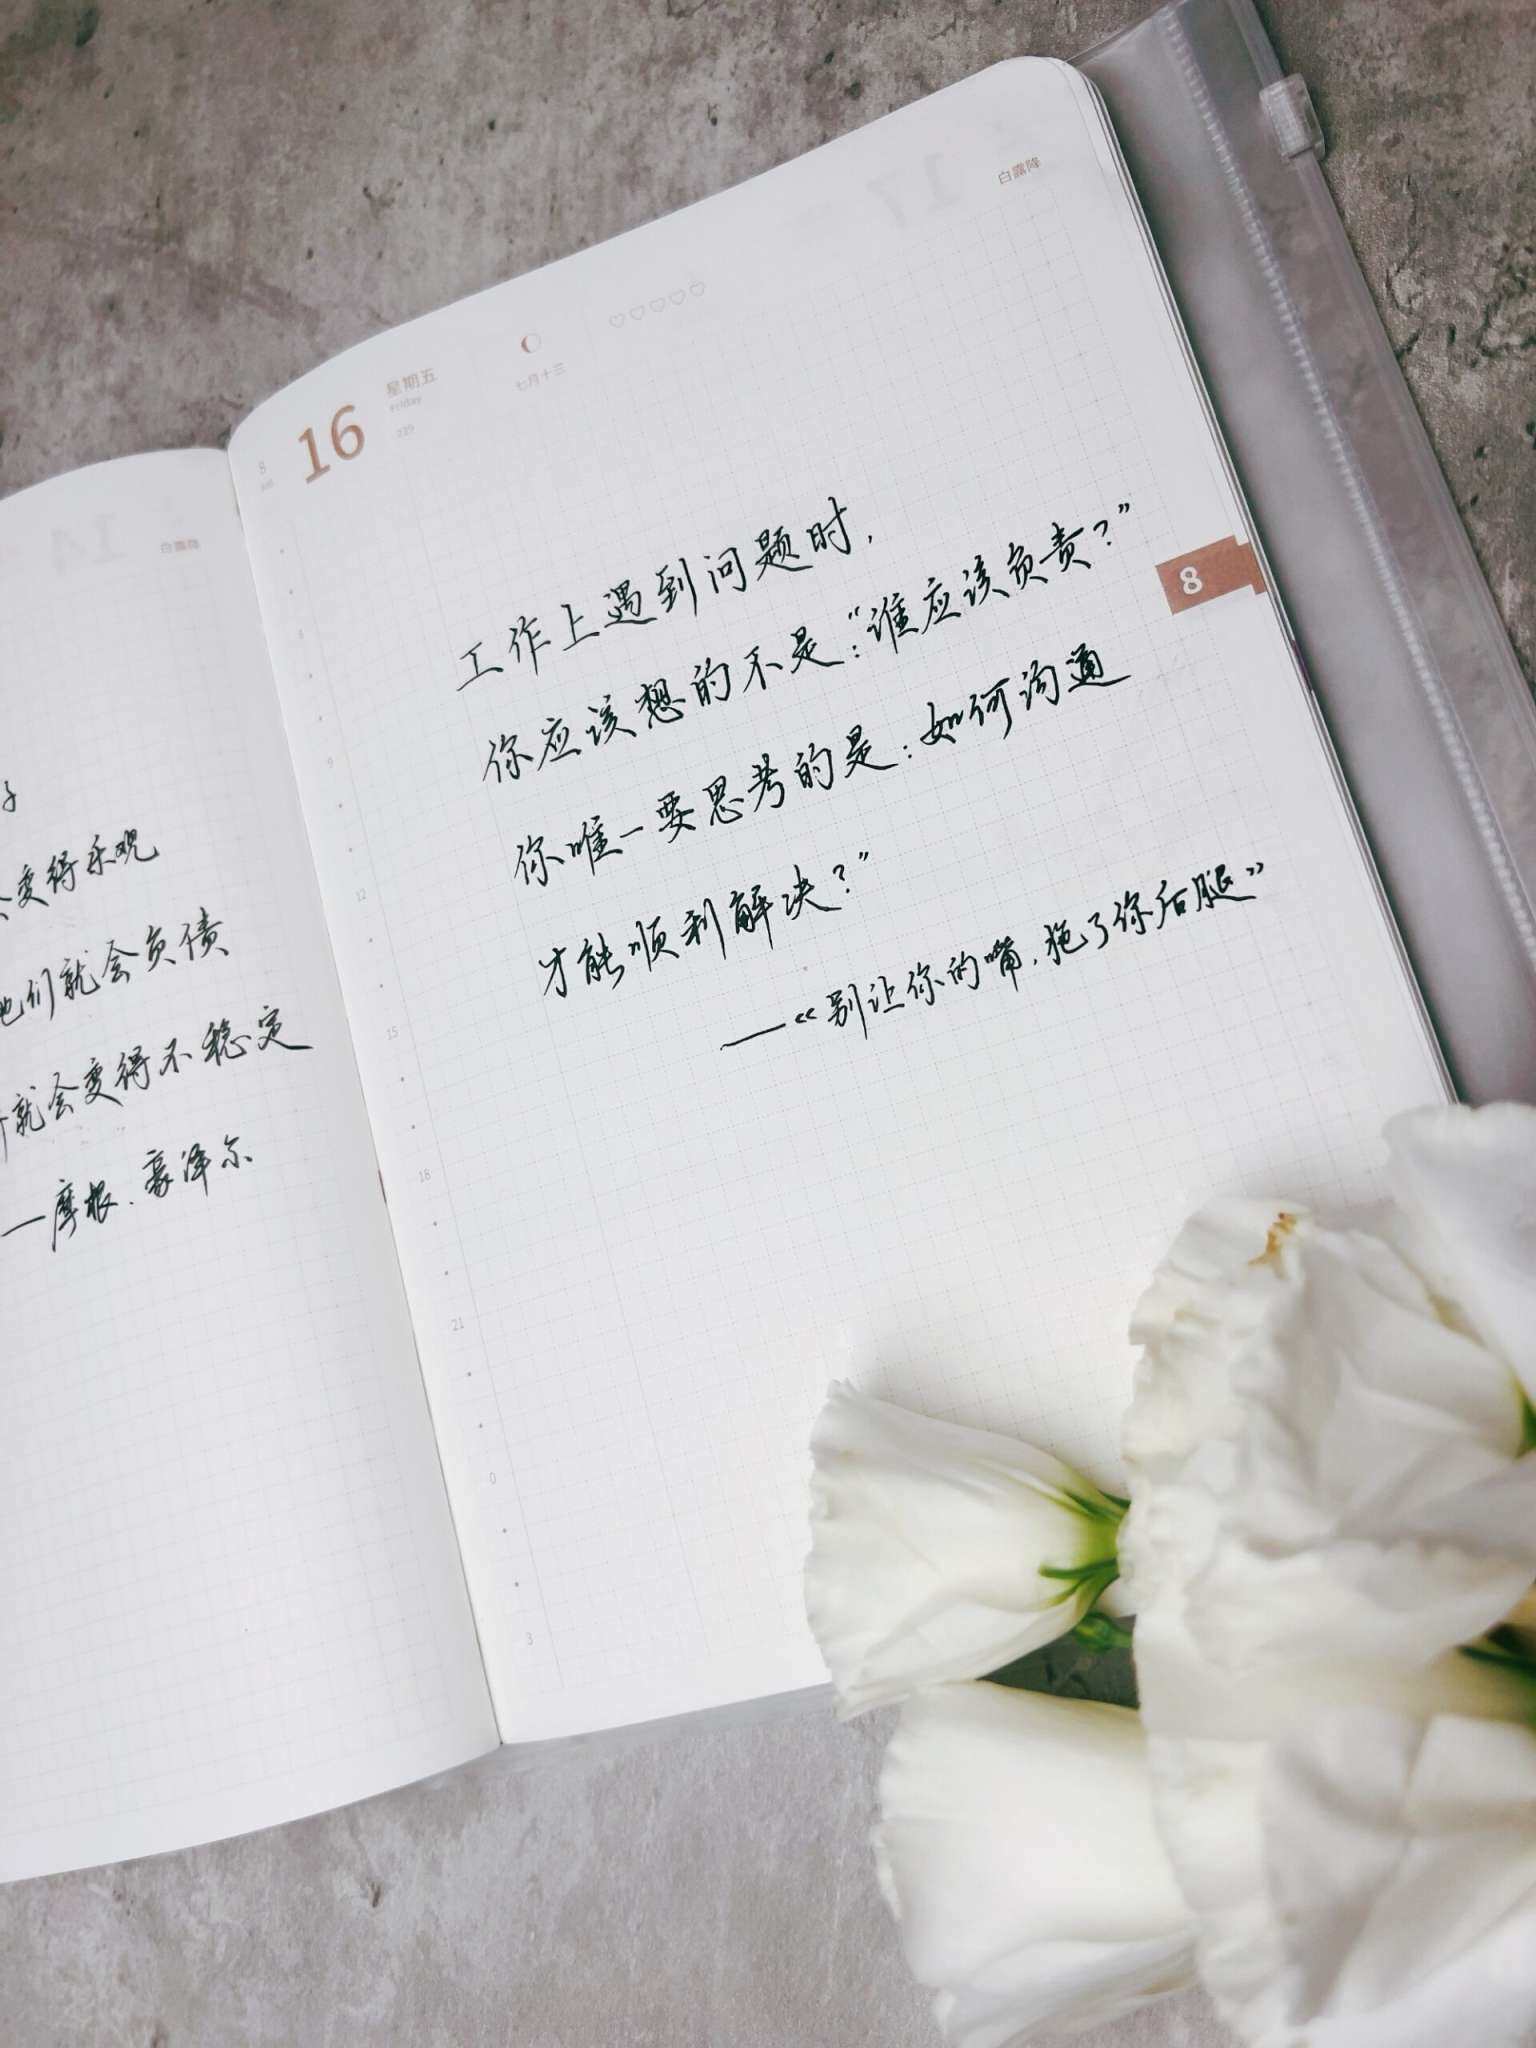 白露降
子
变得乐观
他们就会负债
就会变得不稳定
—摩根.豪泽尔
8
16
星期五
Friday
229
七月十三
白露降
8
工作上遇到问题时,
你应该想的不是:“谁应该负责?”
你唯一要思考的是:如何沟通
才能顺利解决?”
——《别让你的嘴,拖了你后腿》
6
9
12
15
18
21
0
3